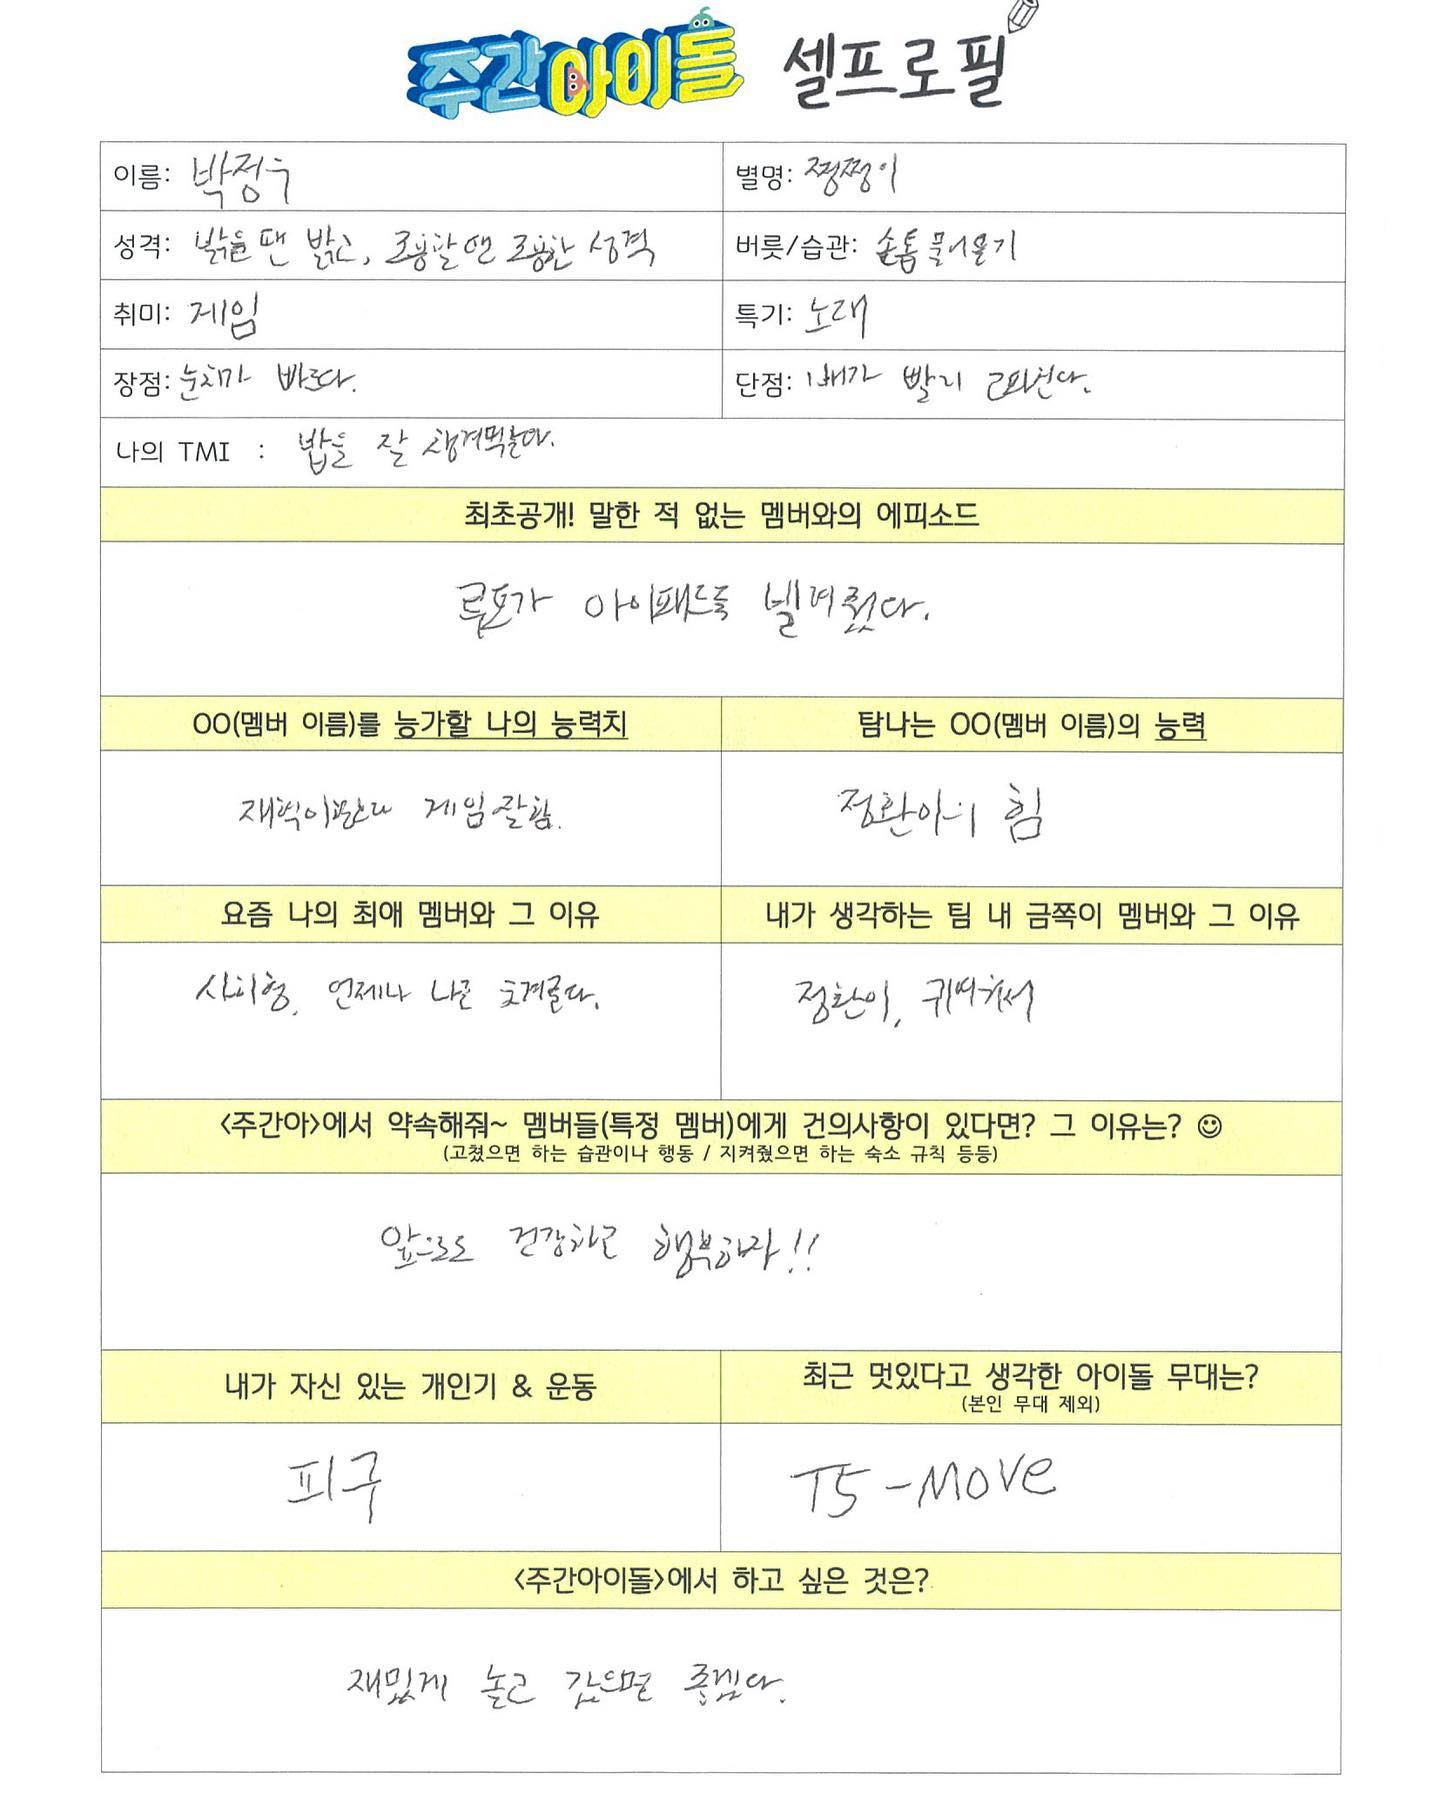 주간아이돌 셀프로필
이름: 박정우
별명: 쩡쩡이
성격: 밝을 땐 밝고, 조용할 땐 조용한 성격
버릇/습관: 손톱 물어뜯기
취미: 게임
특기: 노래
장점: 눈치가 빠르다.
단점: 배가 빨리
나의 TMI : 밥을 잘 챙겨먹는다.
최초공개! 말한 적 없는 멤버와의 에피소드
루토가 아이패드를 빌려줬다.
OO(멤버 이름)를 능가할 나의 능력치
탐나는 OO(멤버 이름)의 능력
재혁이보다 게임 잘함.
정환이의 힘
요즘 나의 최애 멤버와 그 이유
내가 생각하는 팀 내 금쪽이 멤버와 그 이유
사히형, 언제나 나른 웃겨준다.
정환이, 귀여워서
<주간아>에서 약속해줘~ 멤버들(특정 멤버)에게 건의사항이 있다면? 그 이유는? ☺
(고쳤으면 하는 습관이나 행동 / 지켜줬으면 하는 숙소 규칙 등등)
앞으로도 건강하고 행복하자!!
내가 자신 있는 개인기 & 운동
최근 멋있다고 생각한 아이돌 무대는?
(본인 무대 제외)
피구
T5 - Move
<주간아이돌>에서 하고 싶은 것은?
재밌게 놀고 갔으면 좋겠다.